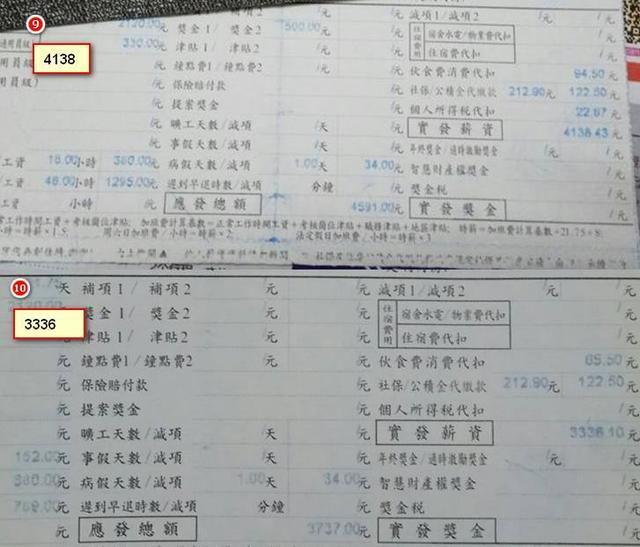 9
4138
2120.00元 獎金1/ 獎金2 500.00元 /元 減項1/減項2 /元 /元
330.00元 津貼1/ 津貼2 /元 /元 住宿費用 宿舍水電/物業費代扣 /元
元 鐘點費1/鐘點費2 /元 /元 住宿費代扣 /元
元 保險賠付款 /元 伙食費消費代扣 94.50元
元 提案獎金 /元 社保/公積金代繳款 212.90元 122.50元
元 曠工天數/減項 /天 /元 個人所得稅代扣 22.67元
元 事假天數/減項 /天 /元 實發薪資 4138.43元
工資 18.00小時 380.00元 病假天數/減項 1.00天 34.00元 年終獎金/適時激勵獎金 /元 /元
工資 46.00小時 1295.00元 遲到早退時數/減項 分鐘 /元 智慧財產權獎金 /元
小時 /元 應發總額 4591.00元 獎金稅 /元
實發獎金 /元
10
3336
天 補項1/ 補項2 /元 元 減項1/減項2 /元 /元
獎金1/ 獎金2 元 /元 住宿費用 宿舍水電/物業費代扣 /元
津貼1/ 津貼2 元 /元 住宿費代扣 /元
元 鐘點費1/鐘點費2 元 /元 伙食費消費代扣 65.50元
元 保險賠付款 /元 社保/公積金代繳款 212.90元 122.50元
元 提案獎金 /元 個人所得稅代扣 /元
元 曠工天數/減項 /天 /元 實發薪資 3336.10元
152.00元 事假天數/減項 /天 /元 年終獎金/適時激勵獎金 元 /元
380.00元 病假天數/減項 1.00天 34.00元 智慧財產權獎金 /元
769.00元 遲到早退時數/減項 分鐘 /元 獎金稅 /元
元 應發總額 3737.00元 實發獎金 /元